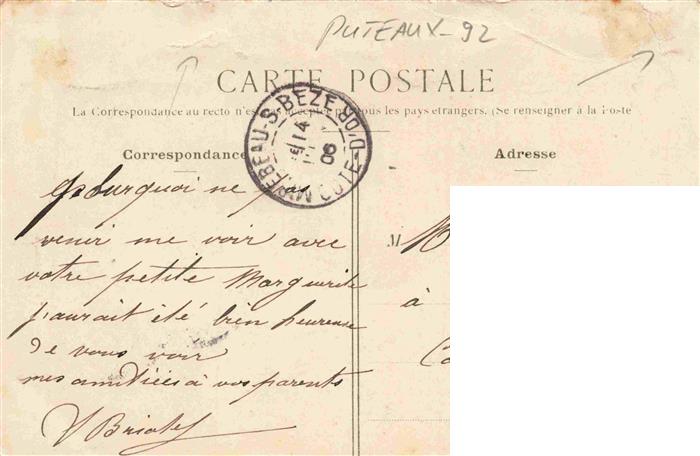 PUTEAUX-92
CARTE POSTALE
La Correspondance au recto n'est pas acceptée par tous les pays étrangers. (Se renseigner à la Poste
Correspondance
Adresse
MIREBEAU-S-BEZE
COTE-D'OR
14
06
Pourquoi ne pas
venir me voir avec
votre petite Marguerite
j'aurait été bien heureuse
de vous voir
mes amitiées à vos parents
M
à